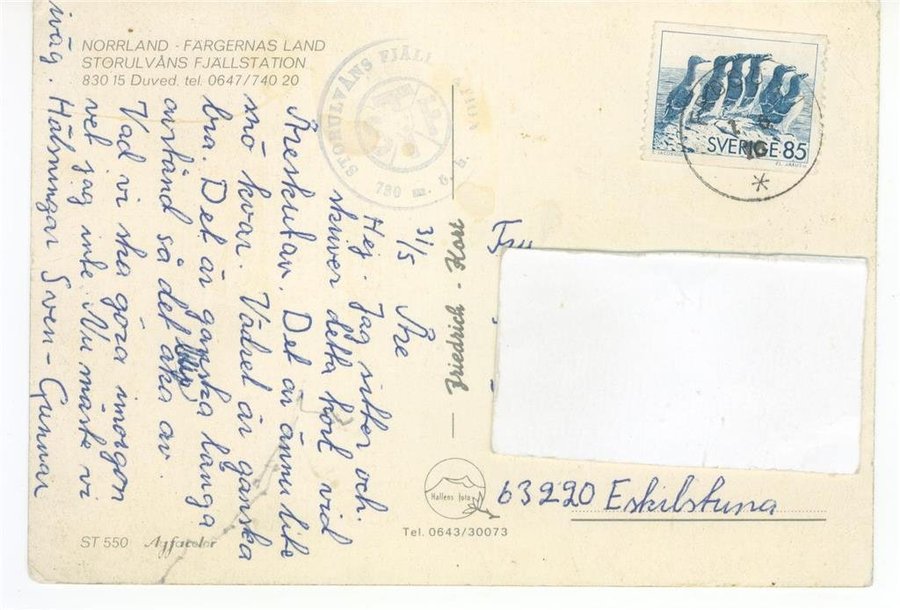 NORRLAND - FÄRGERNAS LAND
STORULVÅNS FJÄLLSTATION
830 15 Duved. tel. 0647/740 20
STORULVÅNS FJÄLL
780 m. ö. h.
SVERIGE 85
31/5 Åre
Hej. Jag sitter och
skriver detta kort vid
Åreskutan. Det är ännu lite
snö kvar. Vädret är ganska
bra. Det är ganska långa
avstånd så det blir åka av.
Vad vi ska göra imorgon
vet jag inte. Nu måste vi
iväg. Hälsningar Sven-Gunnar
Friedrich - Kort
Fru
63220 Eskilstuna
Hallens foto
Tel. 0643/30073
ST 550 Agfacolor